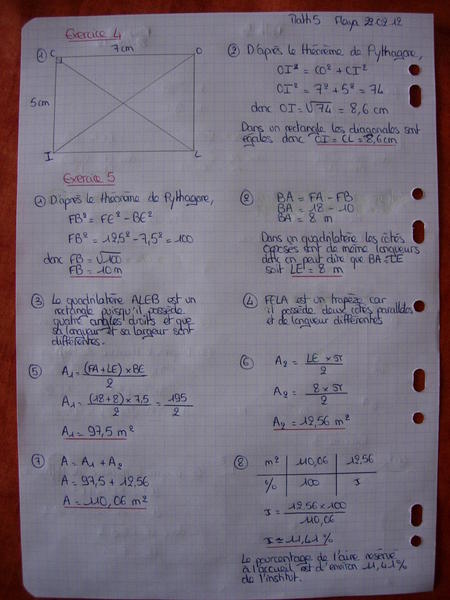 Exercice 4
Math 5 Maya 22.02.12
① C 7cm O
5cm
I L
② D'après le théorème de Pythagore,
OI² = CO² + CI²
OI² = 7² + 5² = 74
donc OI = √74 = 8,6 cm
Dans un rectangle les diagonales sont
égales donc OI = CL = 8,6 cm
Exercice 5
① D'après le théorème de Pythagore,
FB² = FE² - BE²
FB² = 12,5² - 7,5² = 100
donc FB = √100
FB = 10 m
② BA = FA - FB
BA = 18 - 10
BA = 8 m
Dans un quadrilatère les côtés
opposés sont de même longueurs
donc on peut dire que BA = LE
soit LE = 8 m
③ Le quadrilatère ALEB est un
rectangle puisqu'il possède
quatre angles droits et que
sa longueur et sa largeur sont
différentes.
④ FELA est un trapèze car
il possède deux côtés parallèles
et de longueur différentes
⑤ A₁ = (FA + LE) × BE
2
A₁ = (18 + 8) × 7,5 = 195
2 2
A₁ = 97,5 m²
⑥ A₂ = LE × π
2
A₂ = 8 × π
2
A₂ = 12,56 m²
⑦ A = A₁ + A₂
A = 97,5 + 12,56
A = 110,06 m²
⑧ m² 110,06 12,56
% 100 I
I = 12,56 × 100
110,06
I ≈ 11,41 %
Le pourcentage de l'aire réservé
à l'accueil est d'environ 11,41%
de l'institut.